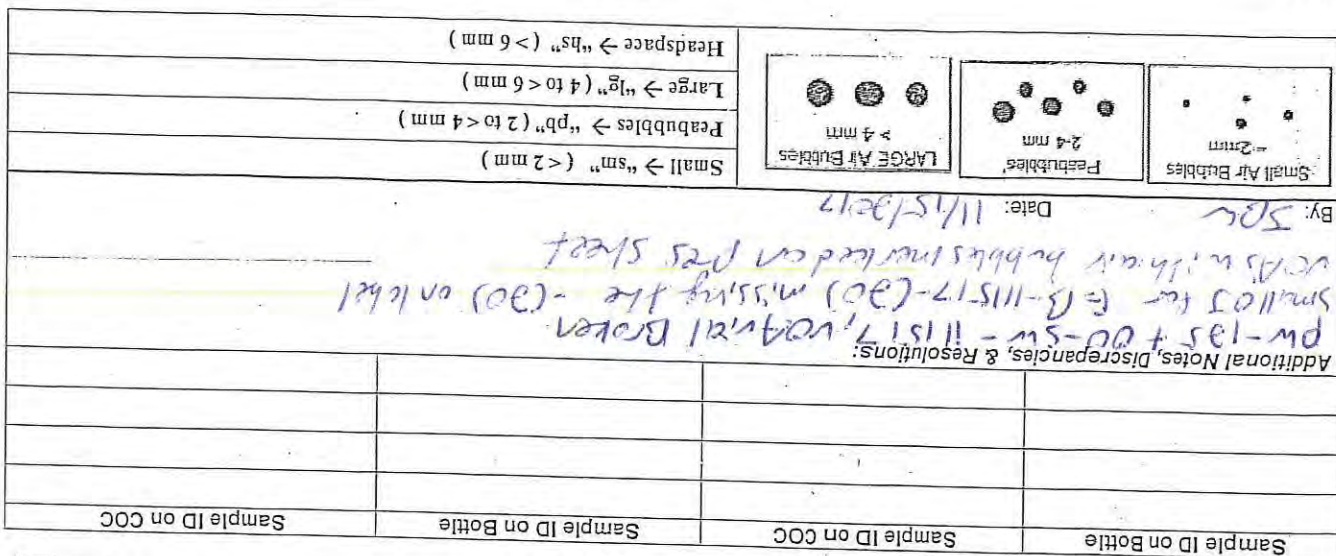 Sample ID on Bottle Sample ID on COC Sample ID on Bottle Sample ID on COC
Additional Notes, Discrepancies, & Resolutions:
pw-135+00-sw-111517, VOA vial Broken
Small OJ for EB-111517-(30) missing the -(30) on label
VOAs with air bubbles marked on pres sheet
By: SBW Date: 11/15/2017
Small Air Bubbles
~2mm
Peabubbles'
2-4 mm
LARGE Air Bubbles
> 4 mm
Small → "sm" (< 2 mm)
Peabubbles → "pb" (2 to < 4 mm)
Large → "lg" (4 to < 6 mm)
Headspace → "hs" (> 6 mm)